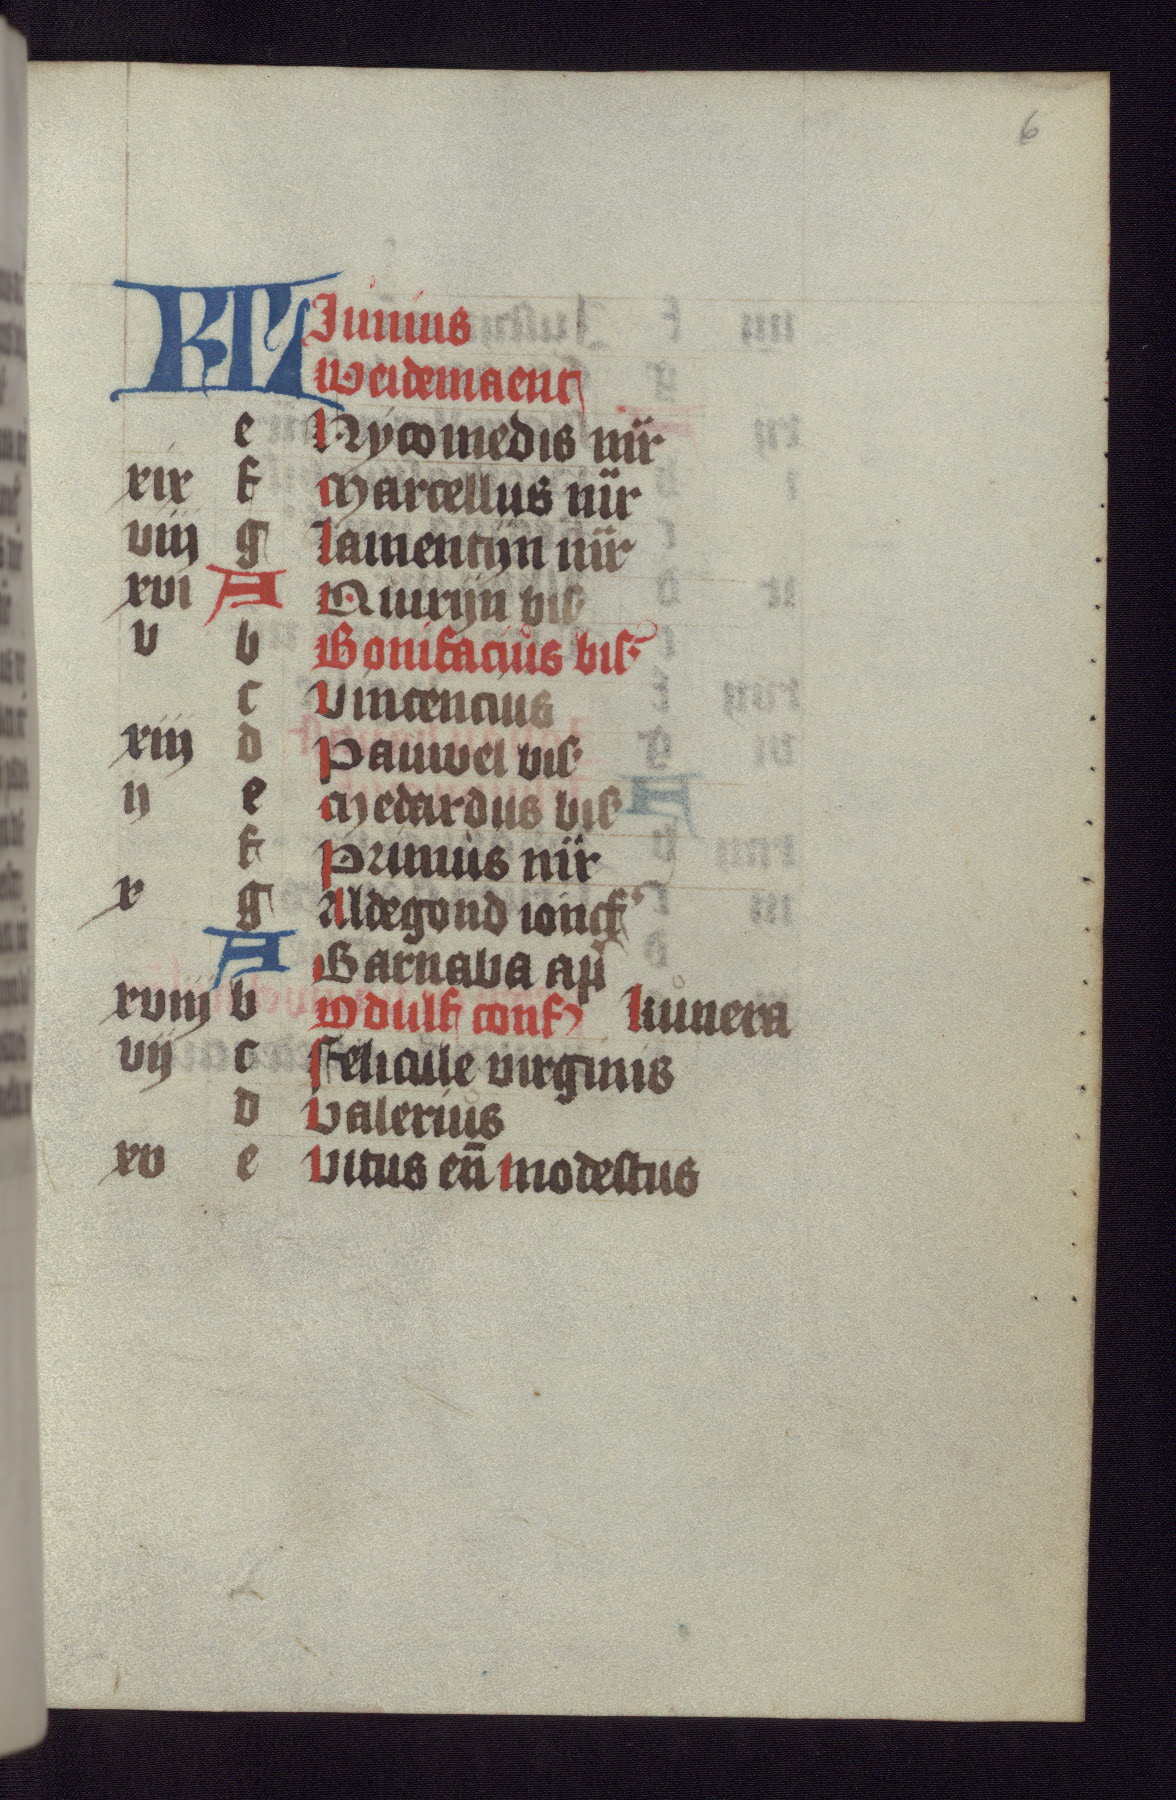 6
KL Junius
Weidemaent
e Nycomedis mr
xix f Marcellus mr
viij g Lamentijn mr
xvi A Quirijn bis
v b Bonifacius bis
c Vincencius
xiij d Pauwel bis
ij e Medardus bis
f Primus mr
x g Aldegond ioncf
A Barnaba ap
xviij b Odulf conf kunera
vij c Felicule virginis
d Valerius
xv e Vitus en modestus